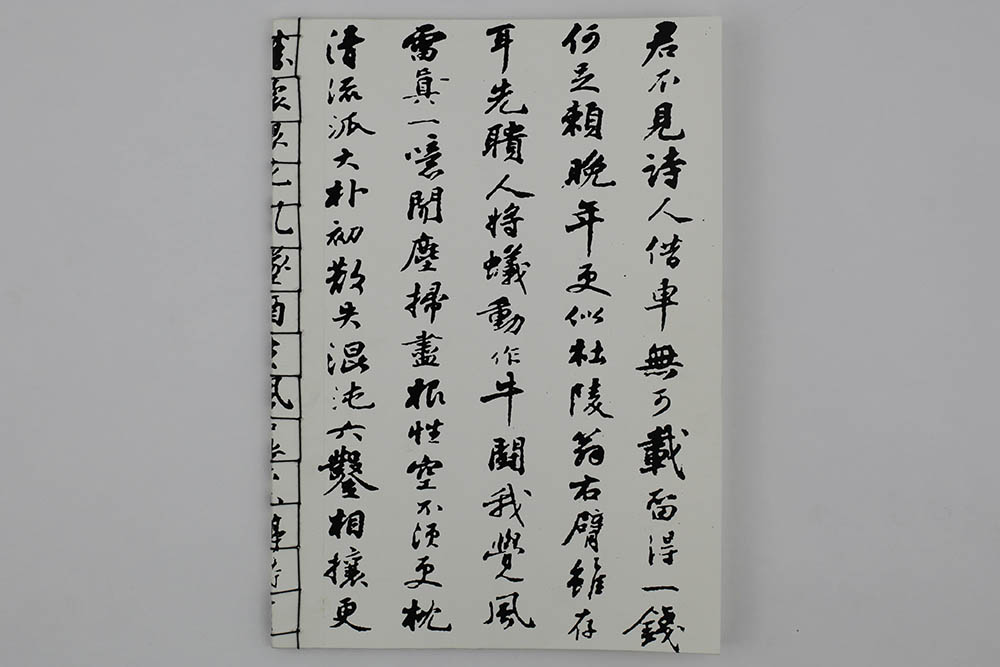 君不見詩人借車無可載留得一錢
何足賴晚年更似杜陵翁右臂雖存
耳先聵人將蟻動作牛鬪我覺風
雷真一噫聞塵掃盡根性空不須更枕
清流派大朴初散失混沌六鑿相攘更